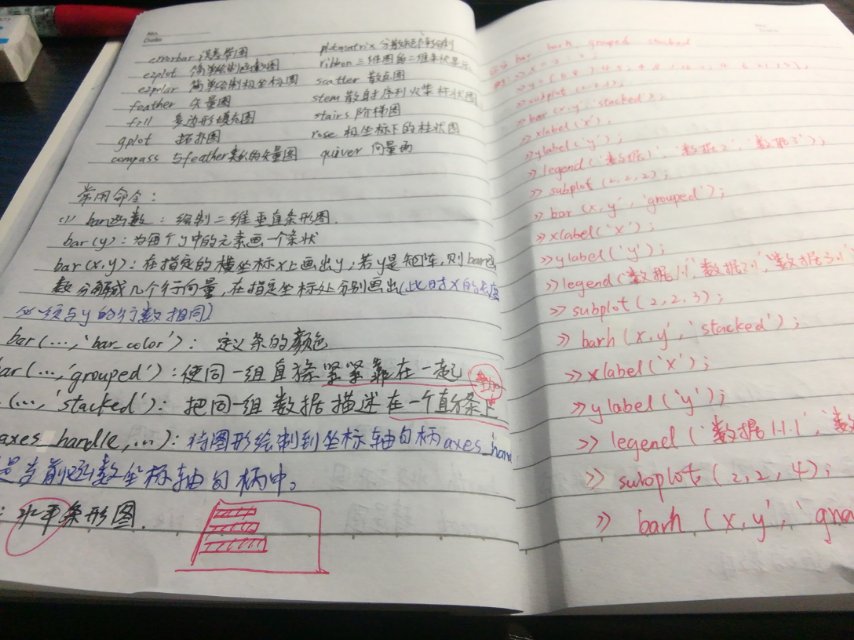 errorbar 误差带图
ezplot 简单绘制函数图
ezpolar 简单绘制极坐标图
feather 矢量图
fill 多边形填充图
gplot 拓扑图
compass 与feather类似的矢量图
plotmatrix 分散矩阵绘制
ribbon 三维图的二维条状显示
scatter 散点图
stem 离散序列火柴杆状图
stairs 阶梯图
rose 极坐标下的柱状图
quiver 向量图
常用命令:
(1) bar函数:绘制二维垂直条形图.
bar(y):为每个y中的元素画一个条状
bar(x,y):在指定的横坐标x上画出y,若y是矩阵,则bar函
数分解成几个行向量,在指定坐标处分别画出(此时x的长度
必须与y的行数相同)
bar(…,'bar_color'):定义条的颜色
ar(…,'grouped'):使同一组直条紧紧靠在一起
(…,'stacked'):把同一组数据描述在一个直条上
axes_handle,…):将图形绘制到坐标轴句柄axes_han
是当前函数坐标轴句柄中。
:水平条形图.
bar barh grouped stacked
>> subplot
>> bar(x,y,'stacked');
>> xlabel('x');
>> ylabel('y');
>> legend('数据1','数据2','数据3');
>> subplot(2,2,2);
>> bar(x,y,'grouped');
>> xlabel('x');
>> ylabel('y');
>> legend('数据1','数据2','数据3
>> subplot(2,2,3);
>> barh(x,y,'stacked');
>> xlabel('x');
>> ylabel('y');
>> legend('数据1','数
>> subplot(2,2,4);
>> barh(x,y,'gro